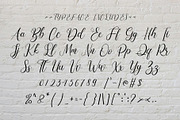 TYPEFACE INCLUDES
Aa Bb Cc Dd Ee Ff Gg Hh
Ii Jj Kk Ll Mm Nn Oo Pp Qq Rr
Ss Tt Uu Vv Ww Xx Yy Zz
1234567890